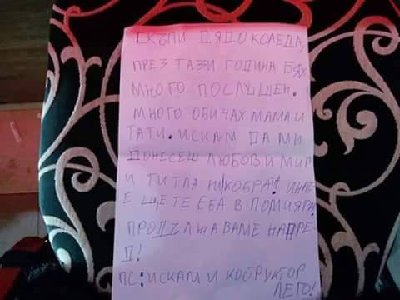 СКЪПИ ДЯДО КОЛЕДА,
ПРЕЗ ТАЗИ ГОДИНА БЯХ
МНОГО ПОСЛУШЕН.
МНОГО ОБИЧАХ МАМА И
ТАТИ. ИСКАМ ДА МИ
ДОНЕСЕШ ЛЮБОВ И МИР
И ТИТАН И КОБРА! ИНАЧ
Е ЩЕ ТЕ ЕБА В ПОМИЯРА!
ПРОДЪЛЖАВАМЕ НАПРЕ
Д!
ПС: ИСКАМ И КОСТРУКТОР
ЛЕГО!